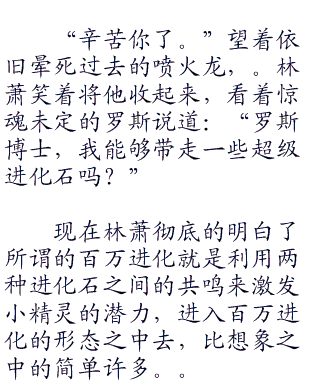 “辛苦你了。”望着依
旧晕死过去的喷火龙，。林
萧笑着将他收起来，看着惊
魂未定的罗斯说道：“罗斯
博士，我能够带走一些超级
进化石吗？”
现在林萧彻底的明白了
所谓的百万进化就是利用两
种进化石之间的共鸣来激发
小精灵的潜力，进入百万进
化的形态之中去，比想象之
中的简单许多。。